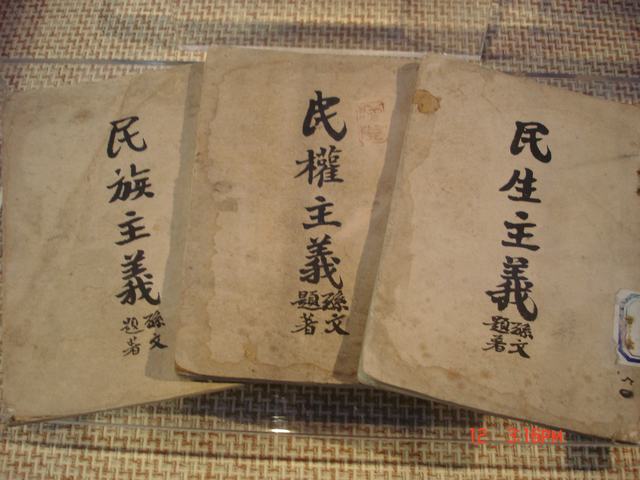 民族主義
孫文
題著
民權主義
孫文
題著
民生主義
孫文
題著
12 3:16PM